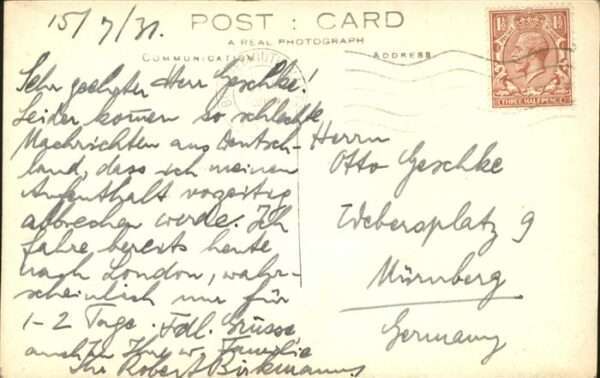 15/7/31.
POST : CARD
A REAL PHOTOGRAPH
COMMUNICATION
ADDRESS
THREE HALFPENCE
Sehr geehrter Herr Geschke!
Leider kommen so schlechte
Nachrichten aus Deutsch-
land, dass ich meinen
Aufenthalt vorzeitig
abbrechen werde. Ich
fahre bereits heute
nach London, wahr-
scheinlich nur für
1-2 Tage. Frdl. Grüsse
auch Ihrer w. Familie
Ihr Robert Birkmann
Herrn
Otto Geschke
Webersplatz 9
Nürnberg
Germany